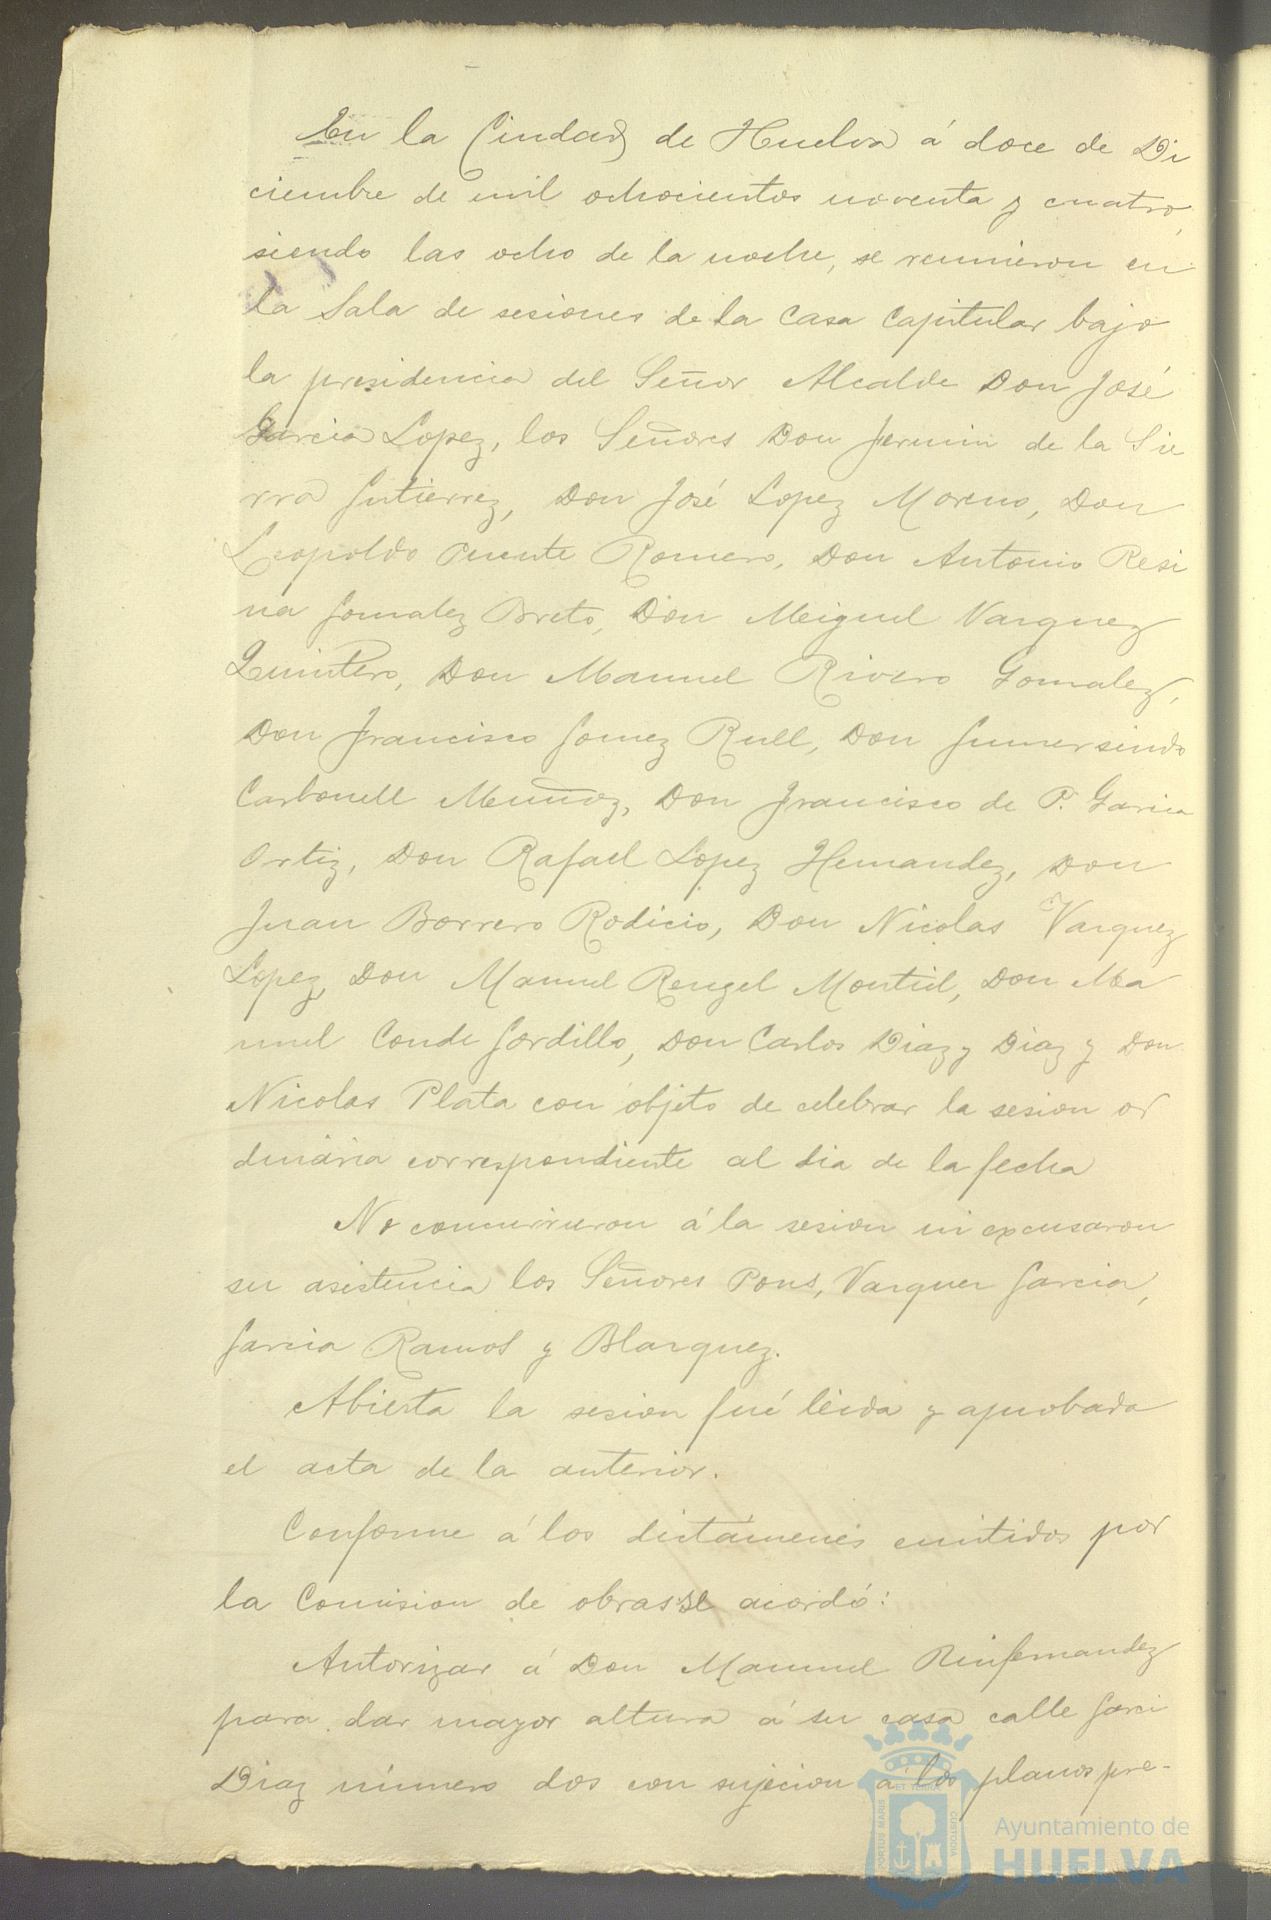 En la Ciudad de Huelva á doce de Di
ciembre de mil ochocientos noventa y cuatro,
siendo las ocho de la noche, se reunieron en
la Sala de sesiones de la Casa Capitular bajo
la presidencia del Señor Alcalde Don José
Garcia Lopez, los Señores Don Fermin de la Sie
rra Gutierrez, Don José Lopez Moreno, Don
Leopoldo Puente Romero, Don Antonio Resi
na Gonzalez Brito, Don Miguel Vazquez
Quintero, Don Manuel Rivero Gonzalez,
Don Francisco Gomez Rull, Don Gumersindo
Carbonell Muñoz, Don Francisco de P. Garcia
Ortiz, Don Rafael Lopez Hernandez, Don
Juan Borrero Rodicio, Don Nicolas Vazquez
Lopez, Don Manuel Rengel Montiel, Don Ma
nuel Conde Gordillo, Don Carlos Diaz y Diaz y Don
Nicolas Plata con objeto de celebrar la sesion or
dinária correspondiente al dia de la fecha
No concurrieron á la sesion ni excusaron
su asistencia los Señores Pons, Vazquez Garcia,
Garcia Ramos y Blazquez.
Abierta la sesion fué leida y aprobada
el acta de la anterior.
Conforme á los dictámenes emitidos por
la Comision de obras se acordó:
Autorizar á Don Manuel Rinfernandez
para dar mayor altura á su casa calle Garci
Diaz número dos con sujecion á los planos pre-
PORTUS MARIS ET TERRAE CUSTODIA
Ayuntamiento de
HUELVA